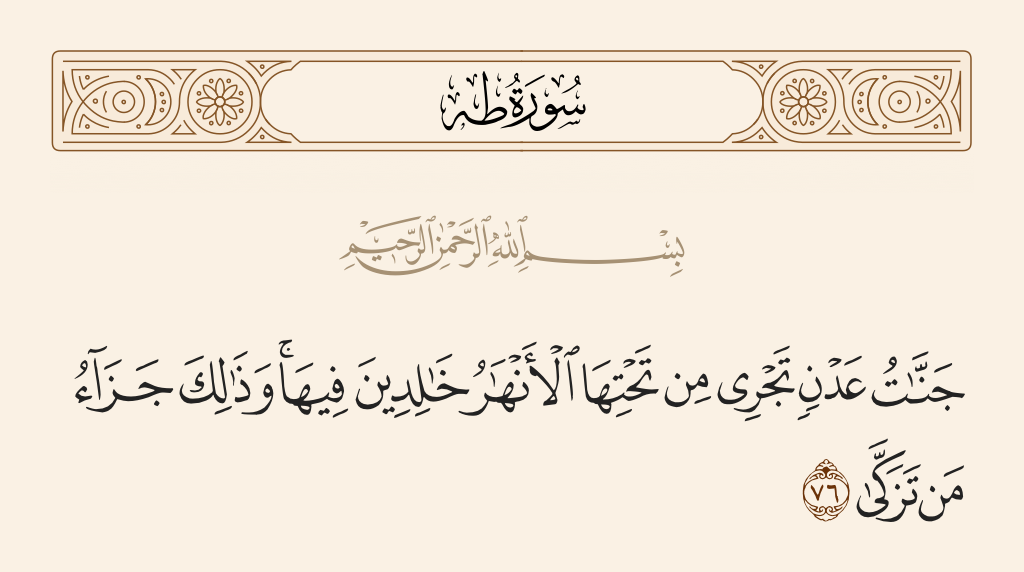 سُورَةُ طه
بِسْمِ ٱللَّهِ ٱلرَّحْمَٰنِ ٱلرَّحِيمِ
جَنَّـٰتُ عَدْنٍ تَجْرِى مِن تَحْتِهَا ٱلْأَنْهَـٰرُ خَـٰلِدِينَ فِيهَا ۚ وَذَٰلِكَ جَزَآءُ
مَن تَزَكَّىٰ ٧٦